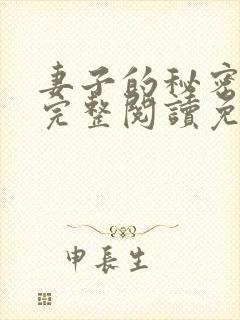 妻子的秘密
完整閱讀免
申長生